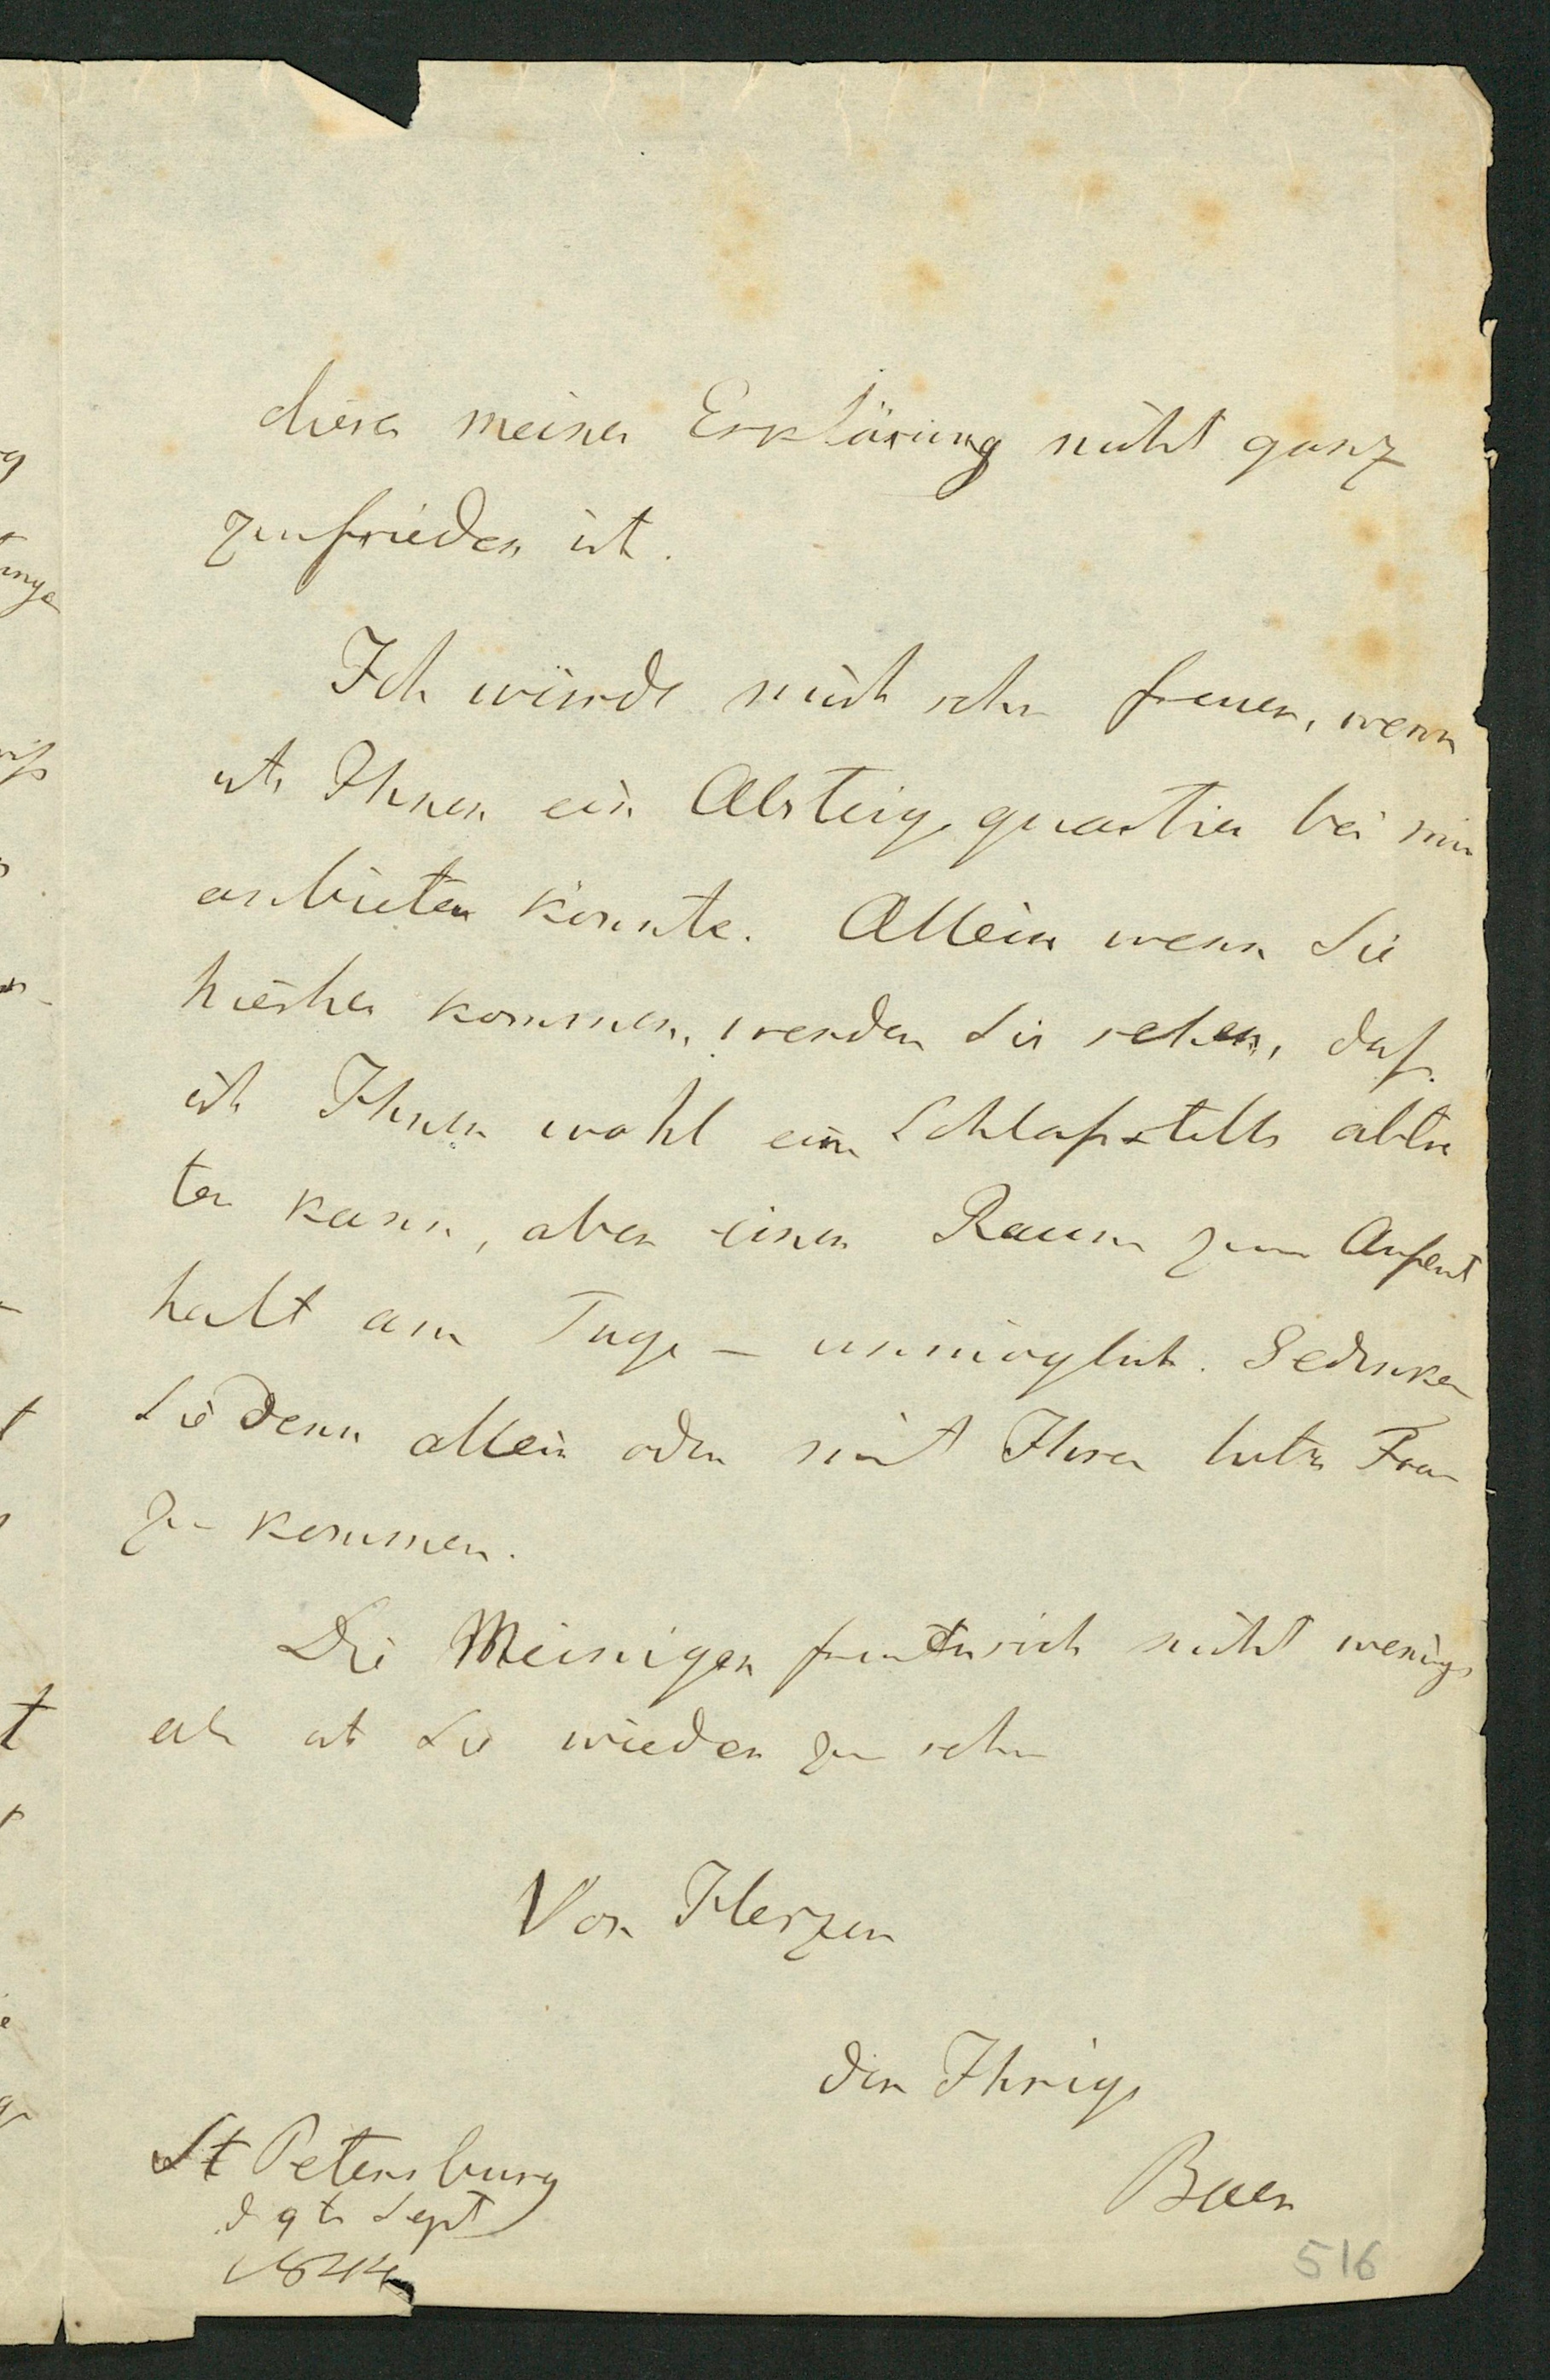 dieser meiner Erklärung nicht ganz
zufrieden ist.
Ich würde mich sehr freuen, wenn
ich Ihnen ein Absteigequartier bei mir
anbieten könnte. Allein wenn Sie
hierher kommen, werden Sie sehen, daß
ich Ihnen wohl eine Schlafstelle abtre
ten kann, aber einen Raum zum Aufent
halt am Tage – unmöglich. Gedenken
Sie denn allein oder mit Ihrer Frau
zu kommen.
Die Meinigen freuen sich nicht weniger
als ich Sie wieder zu sehn
Von Herzen
der Ihrige
Baer
St Petersburg
d 9t Sept
1844
516